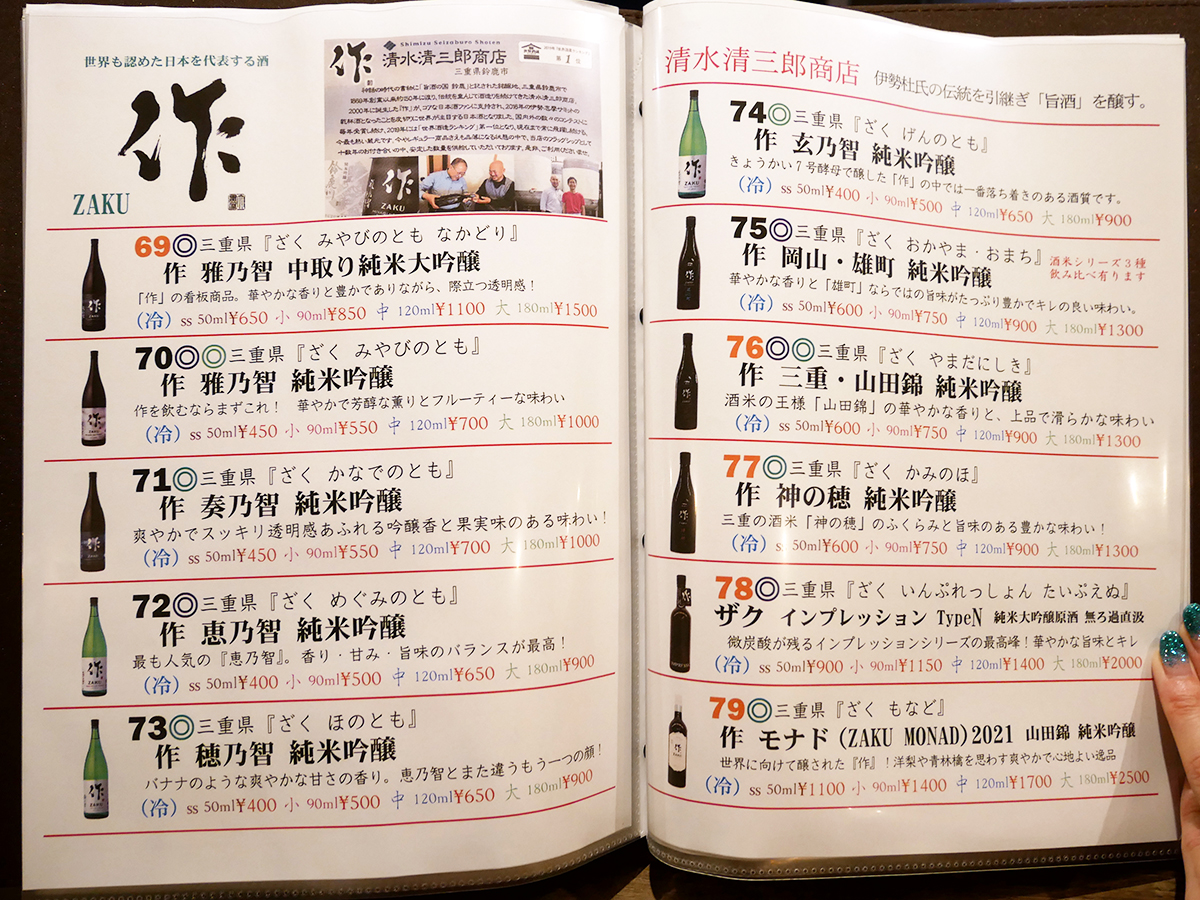 世界も認めた日本を代表する酒
作
ZAKU
作
Shimizu Seizaburo Shoten
清水清三郎商店
三重県鈴鹿市
第1位
作
ZAKU
69◎三重県『ざく みやびのとも なかどり』
作 雅乃智 中取り純米大吟醸
「作」の看板商品。華やかな香りと豊かでありながら、際立つ透明感！
（冷） ss 50ml¥650 小 90ml¥850 中 120ml¥1100 大 180ml¥1500
70◎◎三重県『ざく みやびのとも』
作 雅乃智 純米吟醸
作を飲むならまずこれ！ 華やかで芳醇な薫りとフルーティーな味わい
（冷） ss 50ml¥450 小 90ml¥550 中 120ml¥700 大 180ml¥1000
71◎三重県『ざく かなでのとも』
作 奏乃智 純米吟醸
爽やかでスッキリ透明感あふれる吟醸香と果実味のある味わい！
（冷） ss 50ml¥450 小 90ml¥550 中 120ml¥700 大 180ml¥1000
72◎三重県『ざく めぐみのとも』
作 恵乃智 純米吟醸
最も人気の『恵乃智』。香り・甘み・旨味のバランスが最高！
（冷） ss 50ml¥400 小 90ml¥500 中 120ml¥650 大 180ml¥900
73◎三重県『ざく ほのとも』
作 穂乃智 純米吟醸
バナナのような爽やかな甘さの香り。恵乃智とまた違うもう一つの顔！
（冷） ss 50ml¥400 小 90ml¥500 中 120ml¥650 大 180ml¥900
清水清三郎商店 伊勢杜氏の伝統を引継ぎ「旨酒」を醸す。
74◎三重県『ざく げんのとも』
作 玄乃智 純米吟醸
きょうかい7号酵母で醸した「作」の中では一番落ち着きのある酒質です。
（冷） ss 50ml¥400 小 90ml¥500 中 120ml¥650 大 180ml¥900
75◎三重県『ざく おかやま・おまち』
作 岡山・雄町 純米吟醸
酒米シリーズ3種
飲み比べ有ります
華やかな香りと「雄町」ならではの旨味がたっぷり豊かでキレの良い味わい。
（冷） ss 50ml¥600 小 90ml¥750 中 120ml¥900 大 180ml¥1300
76◎◎三重県『ざく やまだにしき』
作 三重・山田錦 純米吟醸
酒米の王様「山田錦」の華やかな香りと、上品で滑らかな味わい
（冷） ss 50ml¥600 小 90ml¥750 中 120ml¥900 大 180ml¥1300
77◎三重県『ざく かみのほ』
作 神の穂 純米吟醸
三重の酒米「神の穂」のふくらみと旨味のある豊かな味わい！
（冷） ss 50ml¥600 小 90ml¥750 中 120ml¥900 大 180ml¥1300
78◎三重県『ざく いんぷれっしょん たいぷえぬ』
ザク インプレッション TypeN 純米大吟醸原酒 無ろ過直汲
微炭酸が残るインプレッションシリーズの最高峰！華やかな旨味とキレ
（冷） ss 50ml¥900 小 90ml¥1150 中 120ml¥1400 大 180ml¥2000
79◎三重県『ざく もなど』
作 モナド (ZAKU MONAD) 2021 山田錦 純米吟醸
世界に向けて醸された『作』！洋梨や青林檎を思わす爽やかで心地よい逸品
（冷） ss 50ml¥1100 小 90ml¥1400 中 120ml¥1700 大 180ml¥2500